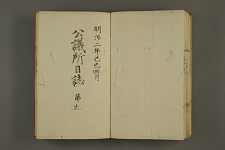 明治二年己巳四月
公議所日誌
第九